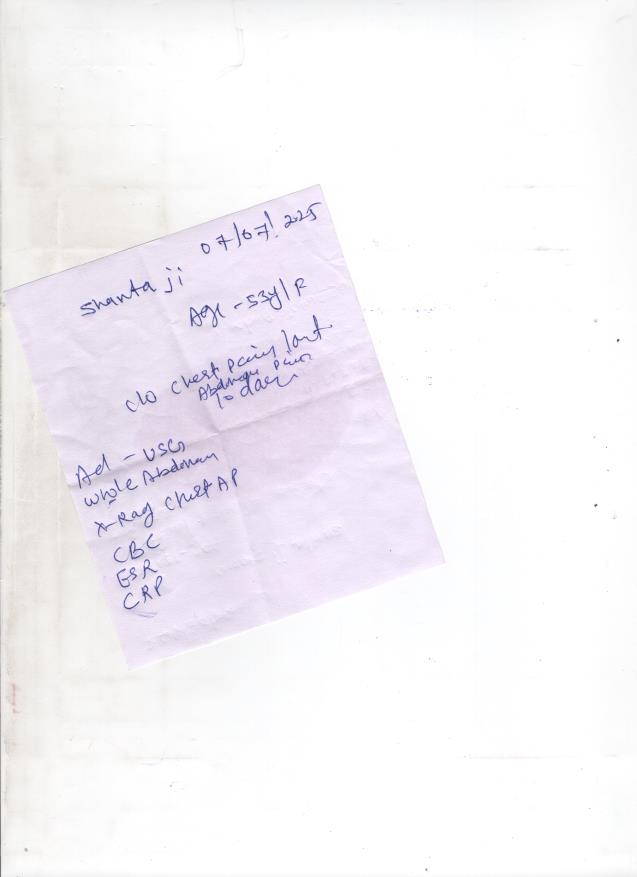 07/07/2025
Shanta ji
Age - 53y/F
c/o chest pain / last
Abdomen pain
10 days
Ad - USG
Whole Abdomen
X-Ray Chest AP
CBC
ESR
CRP